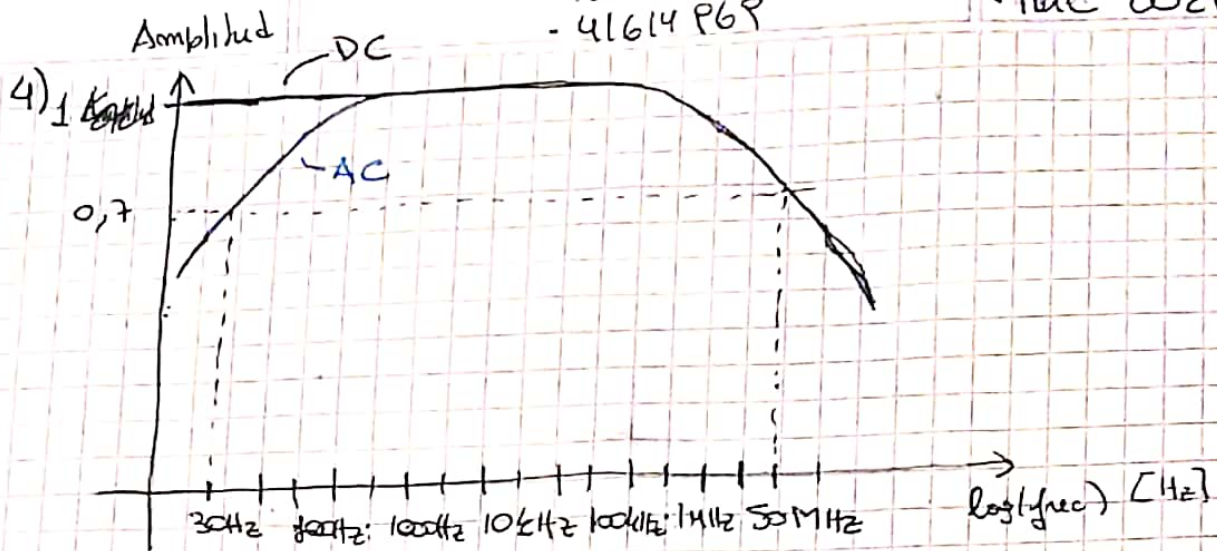 Amplitud
- 41614 969
DC
4) 1
AC
0,7
30Hz 100Hz: 1000Hz 10kHz 100kHz: 1MHz 50MHz
log(frec) [Hz]